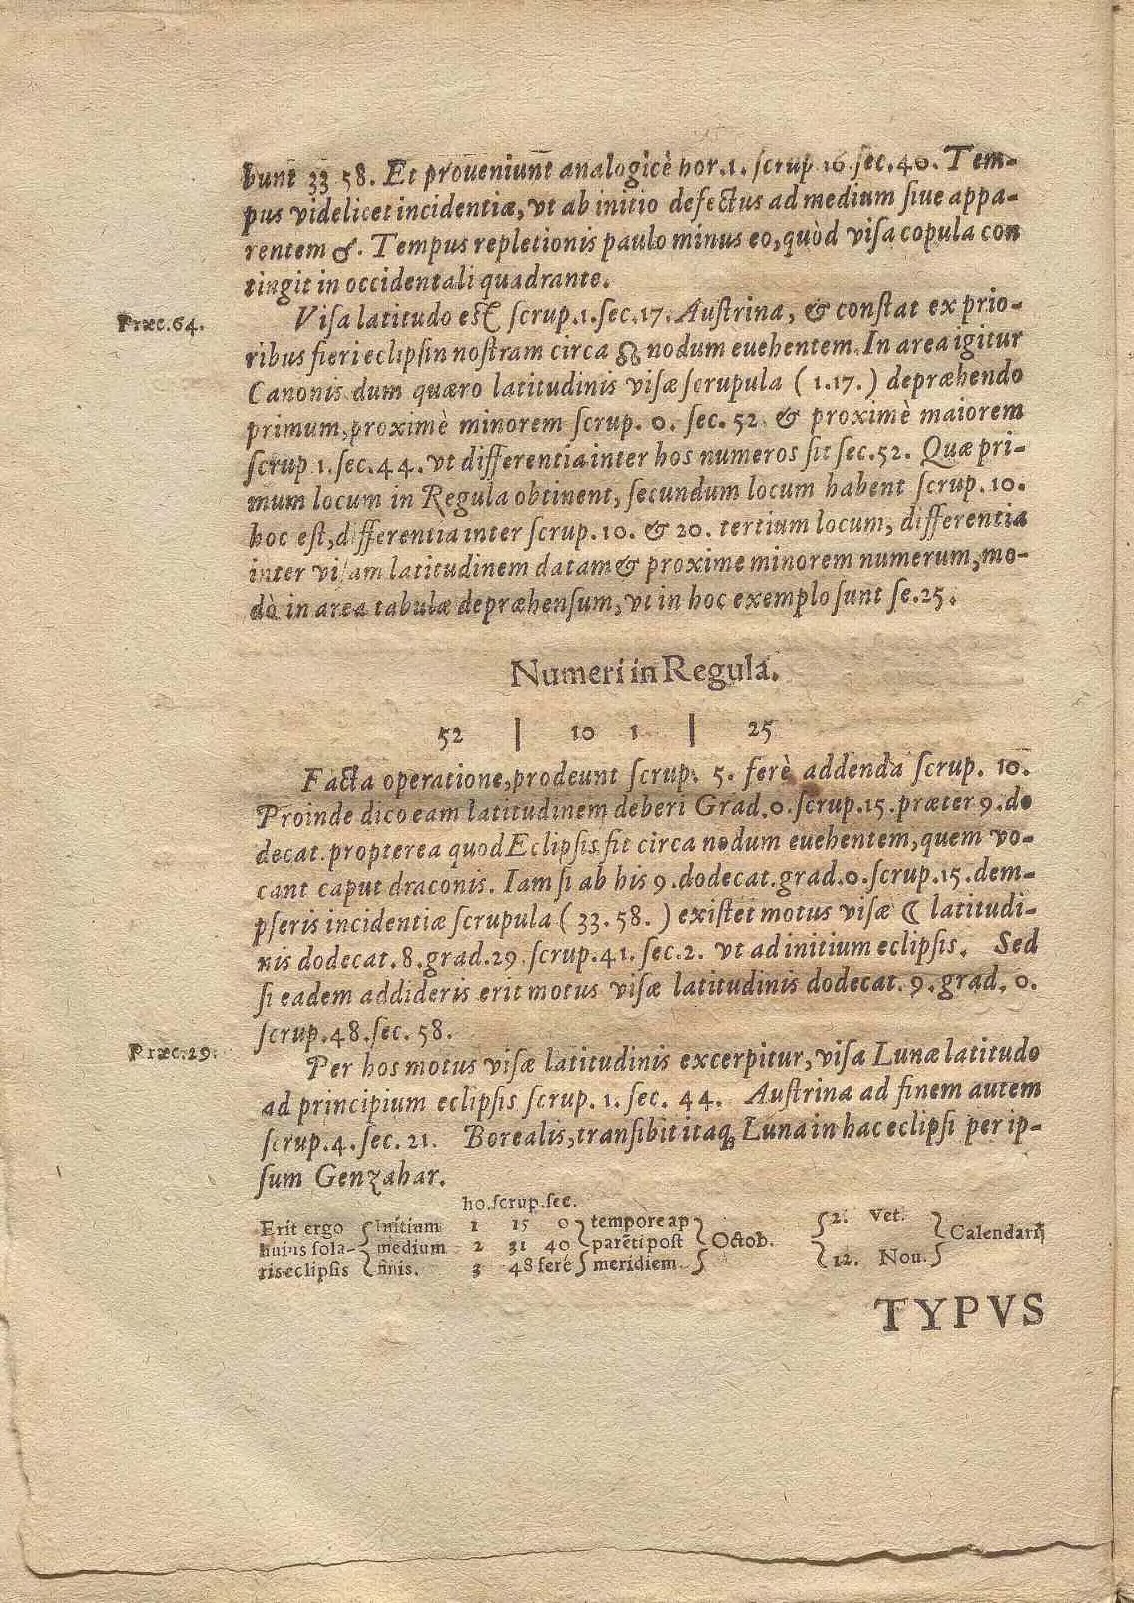 bunt 33 58. Et proueniunt analogicè hor.1. ſcrup 16 ſec.40. Tem-
pus videlicet incidentiæ, vt ab initio defectus ad medium ſiue appa-
rentem ☌. Tempus repletionis paulo minus eo, quòd viſa copula con
tingit in occidentali quadrante.
Præc.64.
Viſa latitudo eſt ſcrup.1.ſec.17. Auſtrina, & conſtat ex prio-
ribus fieri eclipſin noſtram circa ☊ nodum euehentem. In area igitur
Canonis dum quæro latitudinis viſæ ſcrupula (1.17.) depræhendo
primum, proximè minorem ſcrup. 0. ſec. 52. & proximè maiorem
ſcrup 1. ſec.44. vt differentia inter hos numeros ſit ſec.52. Quæ pri-
mum locum in Regula obtinent, ſecundum locum habent ſcrup.10.
hoc eſt, differentia inter ſcrup.10. & 20. tertium locum, differentia
inter viſam latitudinem datam & proxime minorem numerum, mo-
dò in area tabulæ depræhenſum, vt in hoc exemplo ſunt ſe.25.
Numeri in Regula.
52 | 10 1 | 25
Facta operatione, prodeunt ſcrup. 5. ferè addenda ſcrup. 10.
Proinde dico eam latitudinem deberi Grad.0.ſcrup.15.præter 9.do
decat.propterea quod Eclipſis fit circa nodum euehentem, quem vo-
cant caput draconis. Iam ſi ab his 9.dodecat.grad.0.ſcrup.15.dem-
pſeris incidentiæ ſcrupula (33.58.) exiſtet motus viſæ ☾ latitudi-
nis dodecat.8.grad.29.ſcrup.41.ſec.2. vt ad initium eclipſis. Sed
ſi eadem addideris erit motus viſæ latitudinis dodecat.9.grad.0.
ſcrup.48.ſec.58.
Præc.29.
Per hos motus viſæ latitudinis excerpitur, viſa Lunæ latitudo
ad principium eclipſis ſcrup. 1. ſec. 44. Auſtrina ad finem autem
ſcrup.4.ſec.21. Borealis, tranſibit itaq; Luna in hac eclipſi per ip-
ſum Genzahar.
ho.ſcrup.ſec.
Erit ergo { Initium 1 15 0 } tempore ap } { 2. Vet. }
huius ſola- { medium 2 31 40 } parẽti poſt } Octob. Calendarij
ris eclipſis { finis. 3 48 ferè } meridiem. } { 12. Nou. }
TYPVS